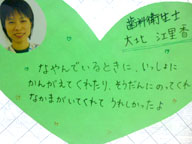 歯科衛生士
大北 江里香
なやんでいるときに、いっしょに
かんがえてくれたり、そうだんにのってくれる
なかまがいてくれて うれしかったよ